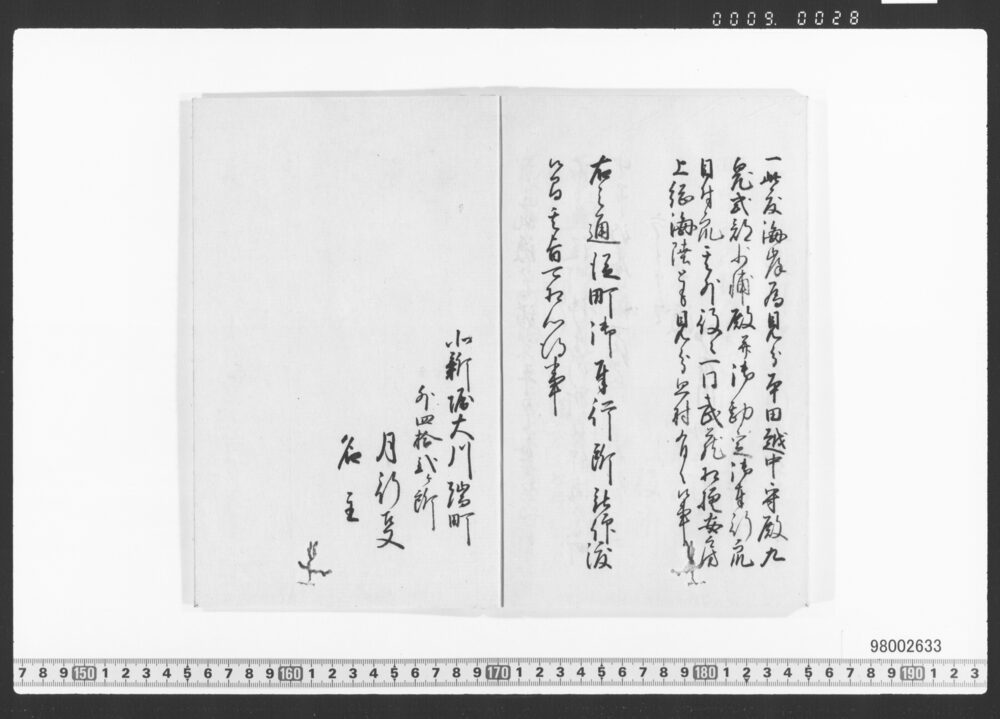 0009. 0028
一此度海岸為見分本田越中守殿九
鬼式部少輔殿并御勘定御奉行衆
目付衆其外役々一同武蔵相模安房
上総海陸とも見分在村有之候事
右之通従町御奉行所被仰渡
候間其旨可相心得事
北新堀大川端町
外四拾弐ヶ所
月行事
名主
98002633
7 8 9 150 1 2 3 4 5 6 7 8 9 160 1 2 3 4 5 6 7 8 9 170 1 2 3 4 5 6 7 8 9 180 1 2 3 4 5 6 7 8 9 190 1 2 3